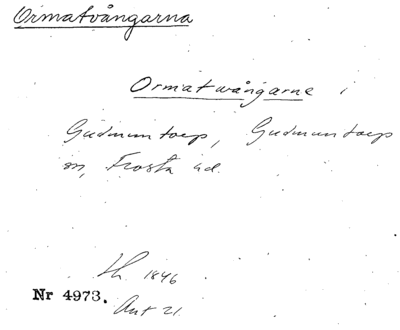 Ormatvångarna
Ormatwångarne i
Gudmuntorp, Gudmuntorp
sn, Frosta hd.
Lh. 1846
Nr 4973. Akt 21.